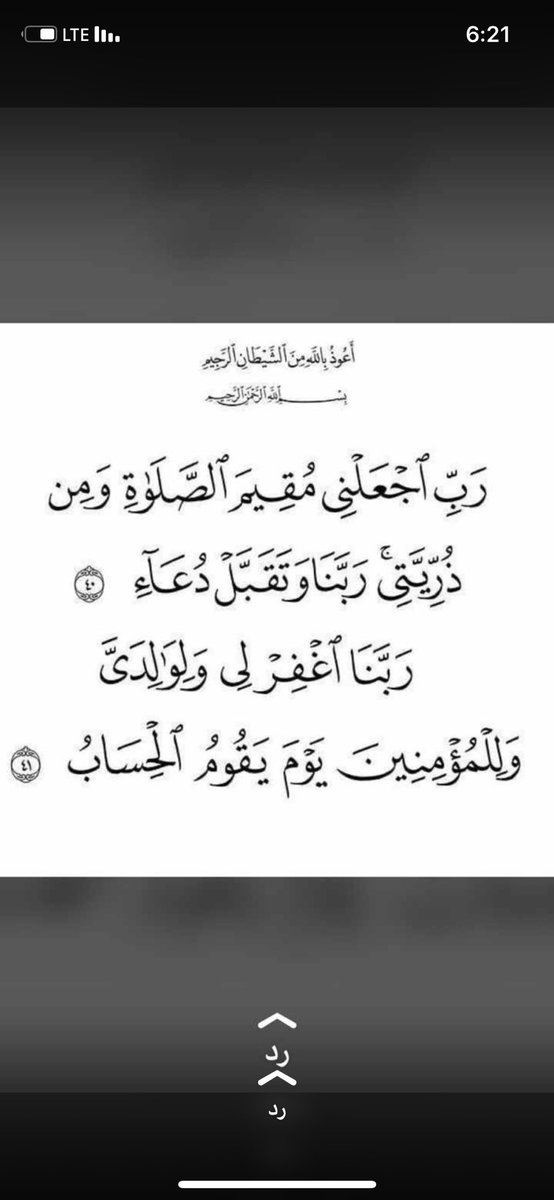 LTE 6:21
أَعُوذُ بِاللَّهِ مِنَ الشَّيْطَانِ الرَّجِيمِ
بِسْمِ اللَّهِ الرَّحْمَٰنِ الرَّحِيمِ
رَبِّ ٱجْعَلْنِى مُقِيمَ ٱلصَّلَوٰةِ وَمِن
ذُرِّيَّتِى ۚ رَبَّنَا وَتَقَبَّلْ دُعَآءِ ٤٠
رَبَّنَا ٱغْفِرْ لِى وَلِوَٰلِدَىَّ
وَلِلْمُؤْمِنِينَ يَوْمَ يَقُومُ ٱلْحِسَابُ ٤١
رد
رد